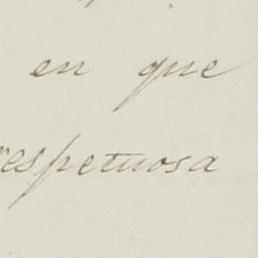 en que
respetuosa